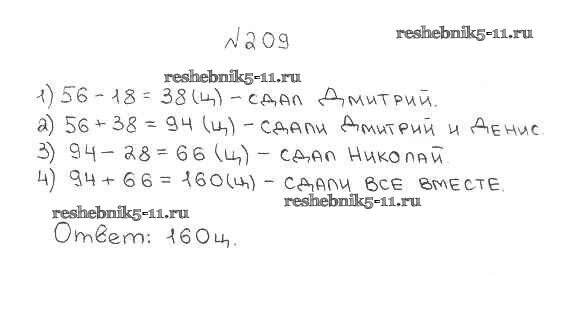 №209
reshebnik5-11.ru
reshebnik5-11.ru
1) 56 - 18 = 38 (ц) - сдал Дмитрий.
2) 56 + 38 = 94 (ц) - сдали Дмитрий и Денис.
3) 94 - 28 = 66 (ц) - сдал Николай.
4) 94 + 66 = 160 (ц) - сдали все вместе.
reshebnik5-11.ru
reshebnik5-11.ru
Ответ: 160ц.